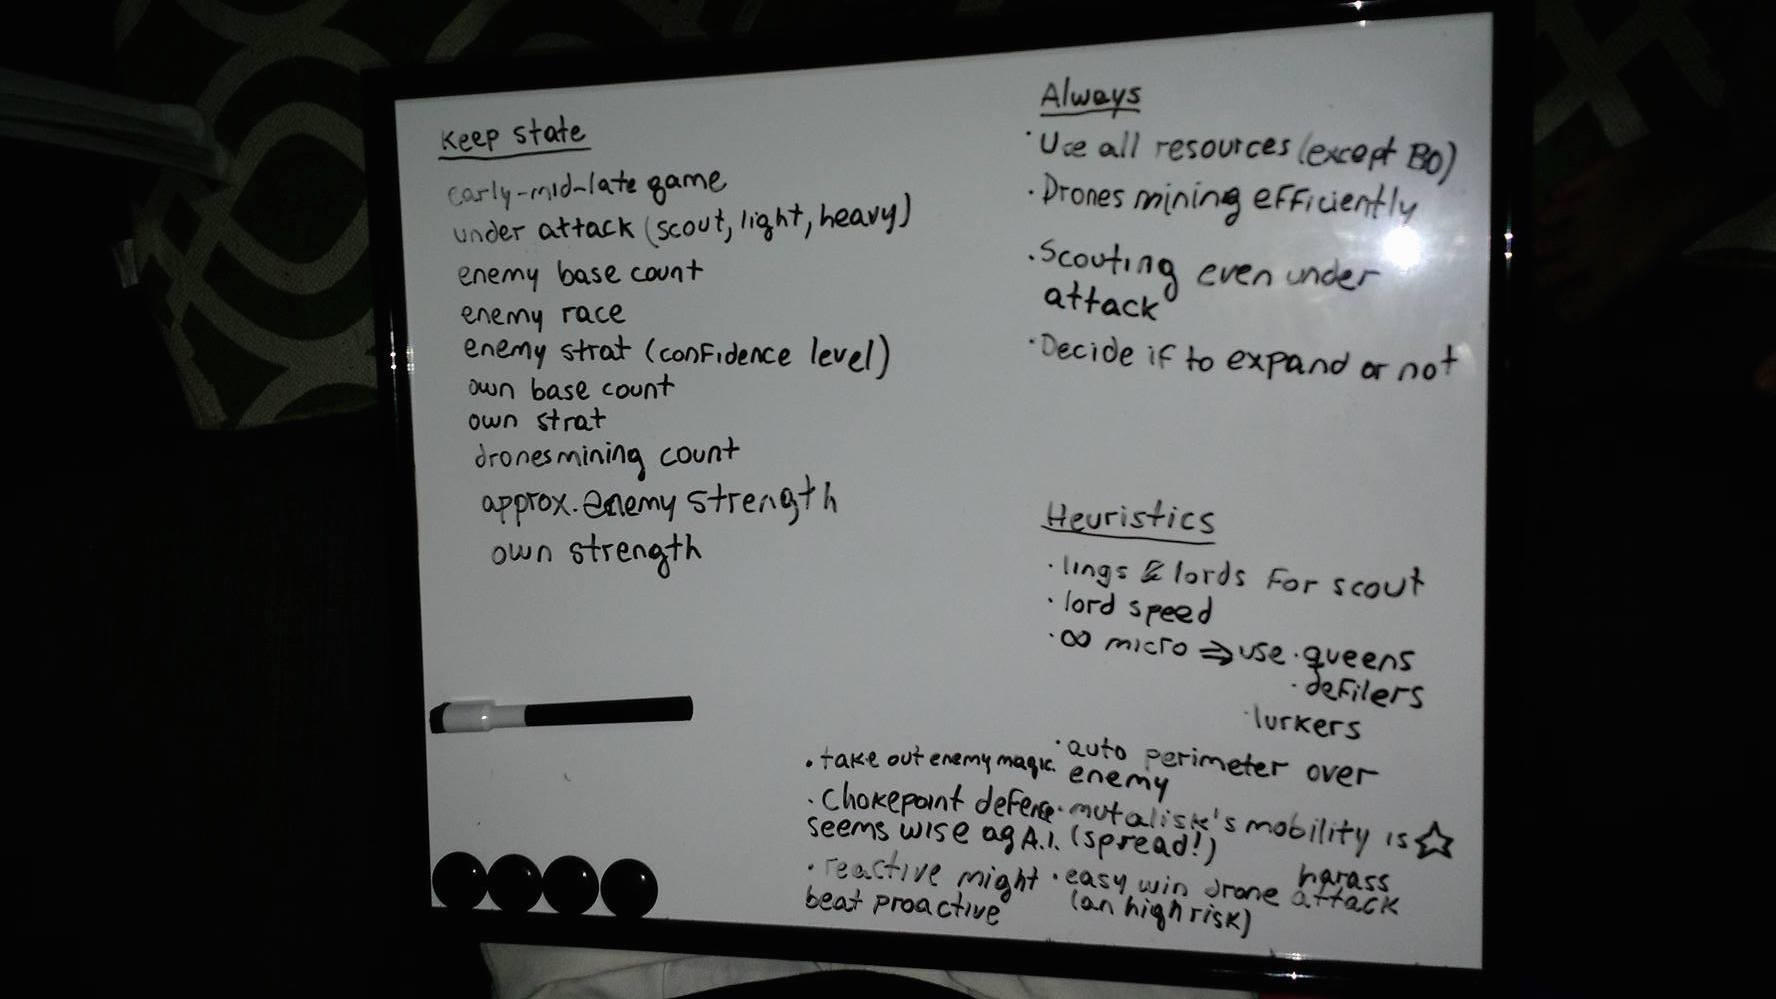 Keep state
early-mid-late game
under attack (scout, light, heavy)
enemy base count
enemy race
enemy strat (confidence level)
own base count
own strat
drones mining count
approx. enemy strength
own strength
Always
· Use all resources (except BO)
· Drones mining efficiently
· Scouting even under
attack
· Decide if to expand or not
Heuristics
· lings & lords for scout
· lord speed
· ∞ micro ⇒ use · queens
· defilers
· lurkers
· auto perimeter over
enemy
· mutalisk's mobility is ☆
(spread!)
· easy win drone harass
attack
(an high risk)
· take out enemy magic.
· Chokepoint defense
seems wise ag A.I.
· reactive might
beat proactive